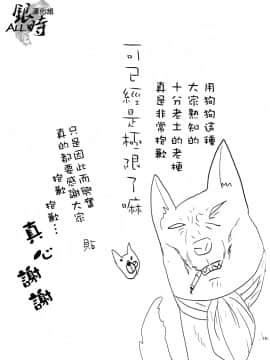 銀時
ALL
漢化組
用狗狗這種
大家熟知的
十分老土的老梗
真是非常抱歉
可已經是極限了嘛
只是因此而興奮
真的都要感謝大家
抱歉抱歉…
貼
真心謝謝